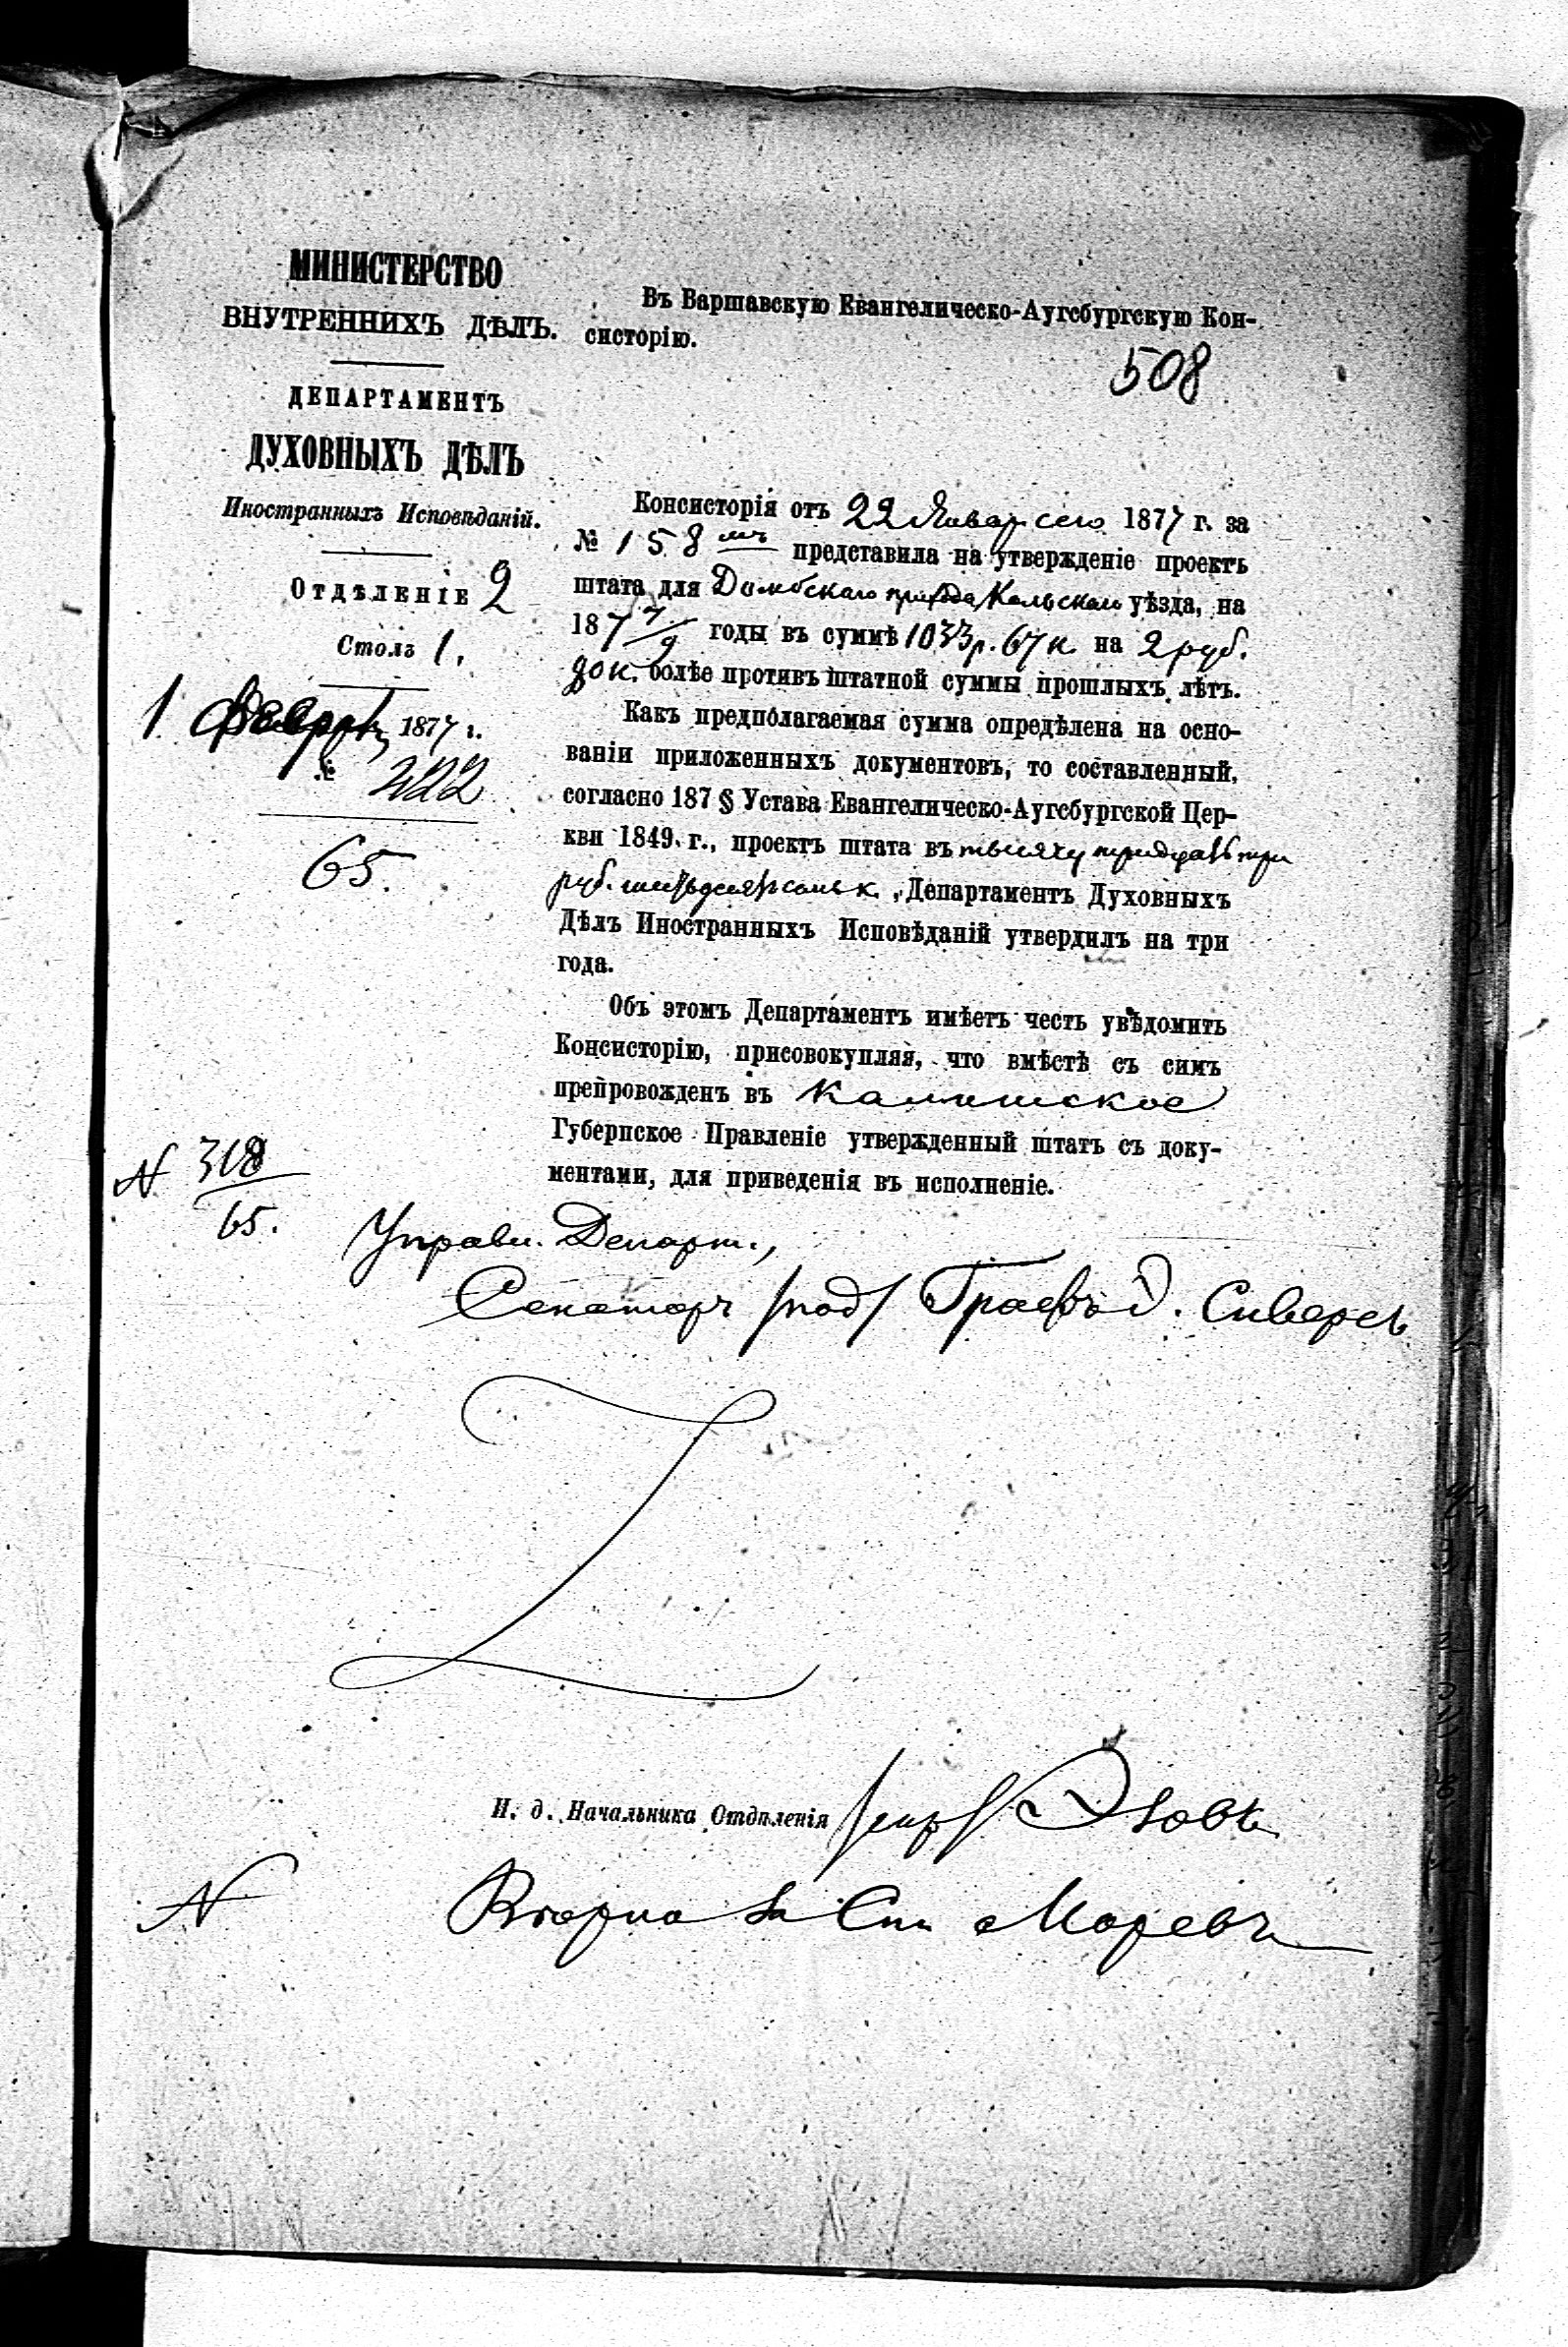 МИНИСТЕРСТВО
ВНУТРЕННИХЪ ДѢЛЪ.
ДЕПАРТАМЕНТЪ
ДУХОВНЫХЪ ДѢЛЪ
Иностранныхъ Исповѣданій.
Отдѣленіе 2
Столъ 1.
1 Февраля 1877 г.
№ 422
65.
№ 318
65.
Въ Варшавскую Евангелическо-Аугсбургскую Кон-
систорію.
508
Консисторія отъ 22 Января сего 1877 г. за
№ 158 мъ представила на утвержденіе проектъ
штата для Домбскаго прихода, Кольскаго уѣзда, на
187 7/9 годы въ суммѣ 1033 р. 67 к. на 2 руб.
90 к. болѣе противъ штатной суммы прошлыхъ лѣтъ.
Какъ предполагаемая сумма опредѣлена на осно-
ваніи приложенныхъ документовъ, то составленный,
согласно 187 § Устава Евангелическо-Аугсбургской Цер-
кви 1849 г., проектъ штата въ тысячу тридцать три
руб. шестьдесятъ семь к., Департаментъ Духовныхъ
Дѣлъ Иностранныхъ Исповѣданій утвердилъ на три
года.
Объ этомъ Департаментъ имѣетъ честь увѣдомить
Консисторію, присовокупляя, что вмѣстѣ съ симъ
препровожденъ въ Калишское
Губернское Правленіе утвержденный штатъ съ доку-
ментами, для приведенія въ исполненіе.
Управл. Департ.,
Сенаторъ /под/ Графъ Э. Сиверсъ
И. д. Начальника Отдѣленія /скр/
Вѣрно